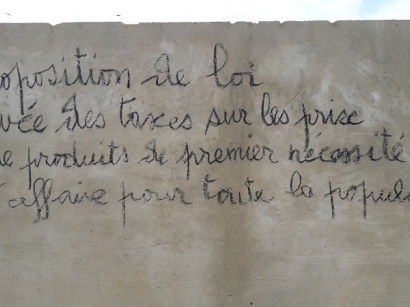 oposition de loi
vée des taxes sur les prix
e produits de premier nécessité
t affaire pour toute la popula